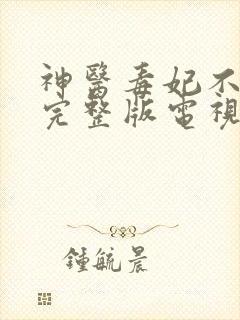 神醫毒妃不
完整版電視
鍾毓晨